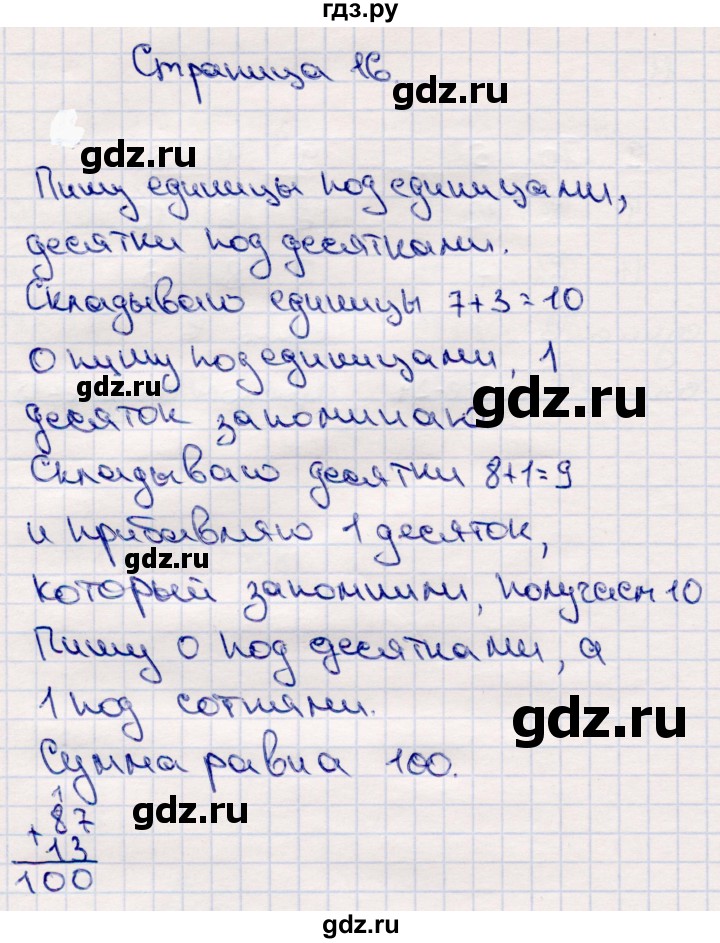 гдз.ру
Страница 16
gdz.ru
gdz.ru
Пишу единицы под единицами,
десятки под десятками.
Складываю единицы 7+3=10
0 пишу под единицами, 1
gdz.ru
gdz.ru
десяток запоминаю
Складываю десятки 8+1=9
и прибавляю 1 десяток,
gdz.ru
который запомнили, получаем 10
Пишу 0 под десятками, а
1 под сотнями.
gdz.ru
Сумма равна 100.
gdz.ru
1
87
+
13
100
gdz.ru